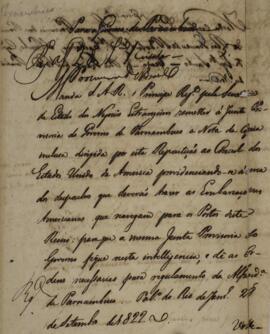 Para o Governo de Pernambuco
Manda S. A. R. o Principe Reg.e pela Secret.a
de Estado dos Negocios Estrangeiros remetter á Junta Pro
visoria do Governo de Pernambuco a Nota da Copia
incluza dirigida por esta Repartição ao Consul dos
Estados Unidos da America providenciando á
dos despachos que deverão haver as Embarcaçoens
Americanas que navegam para os Portos deste
Reino; para que a mesma Junta Provisoria do
Governo fique nesta intelligencia, e dê as Or
dens necessarias para regulamento da Alfand.a
de Pernambuco. Pal.o do Rio de Jan.o 28
de Setembro de 1822